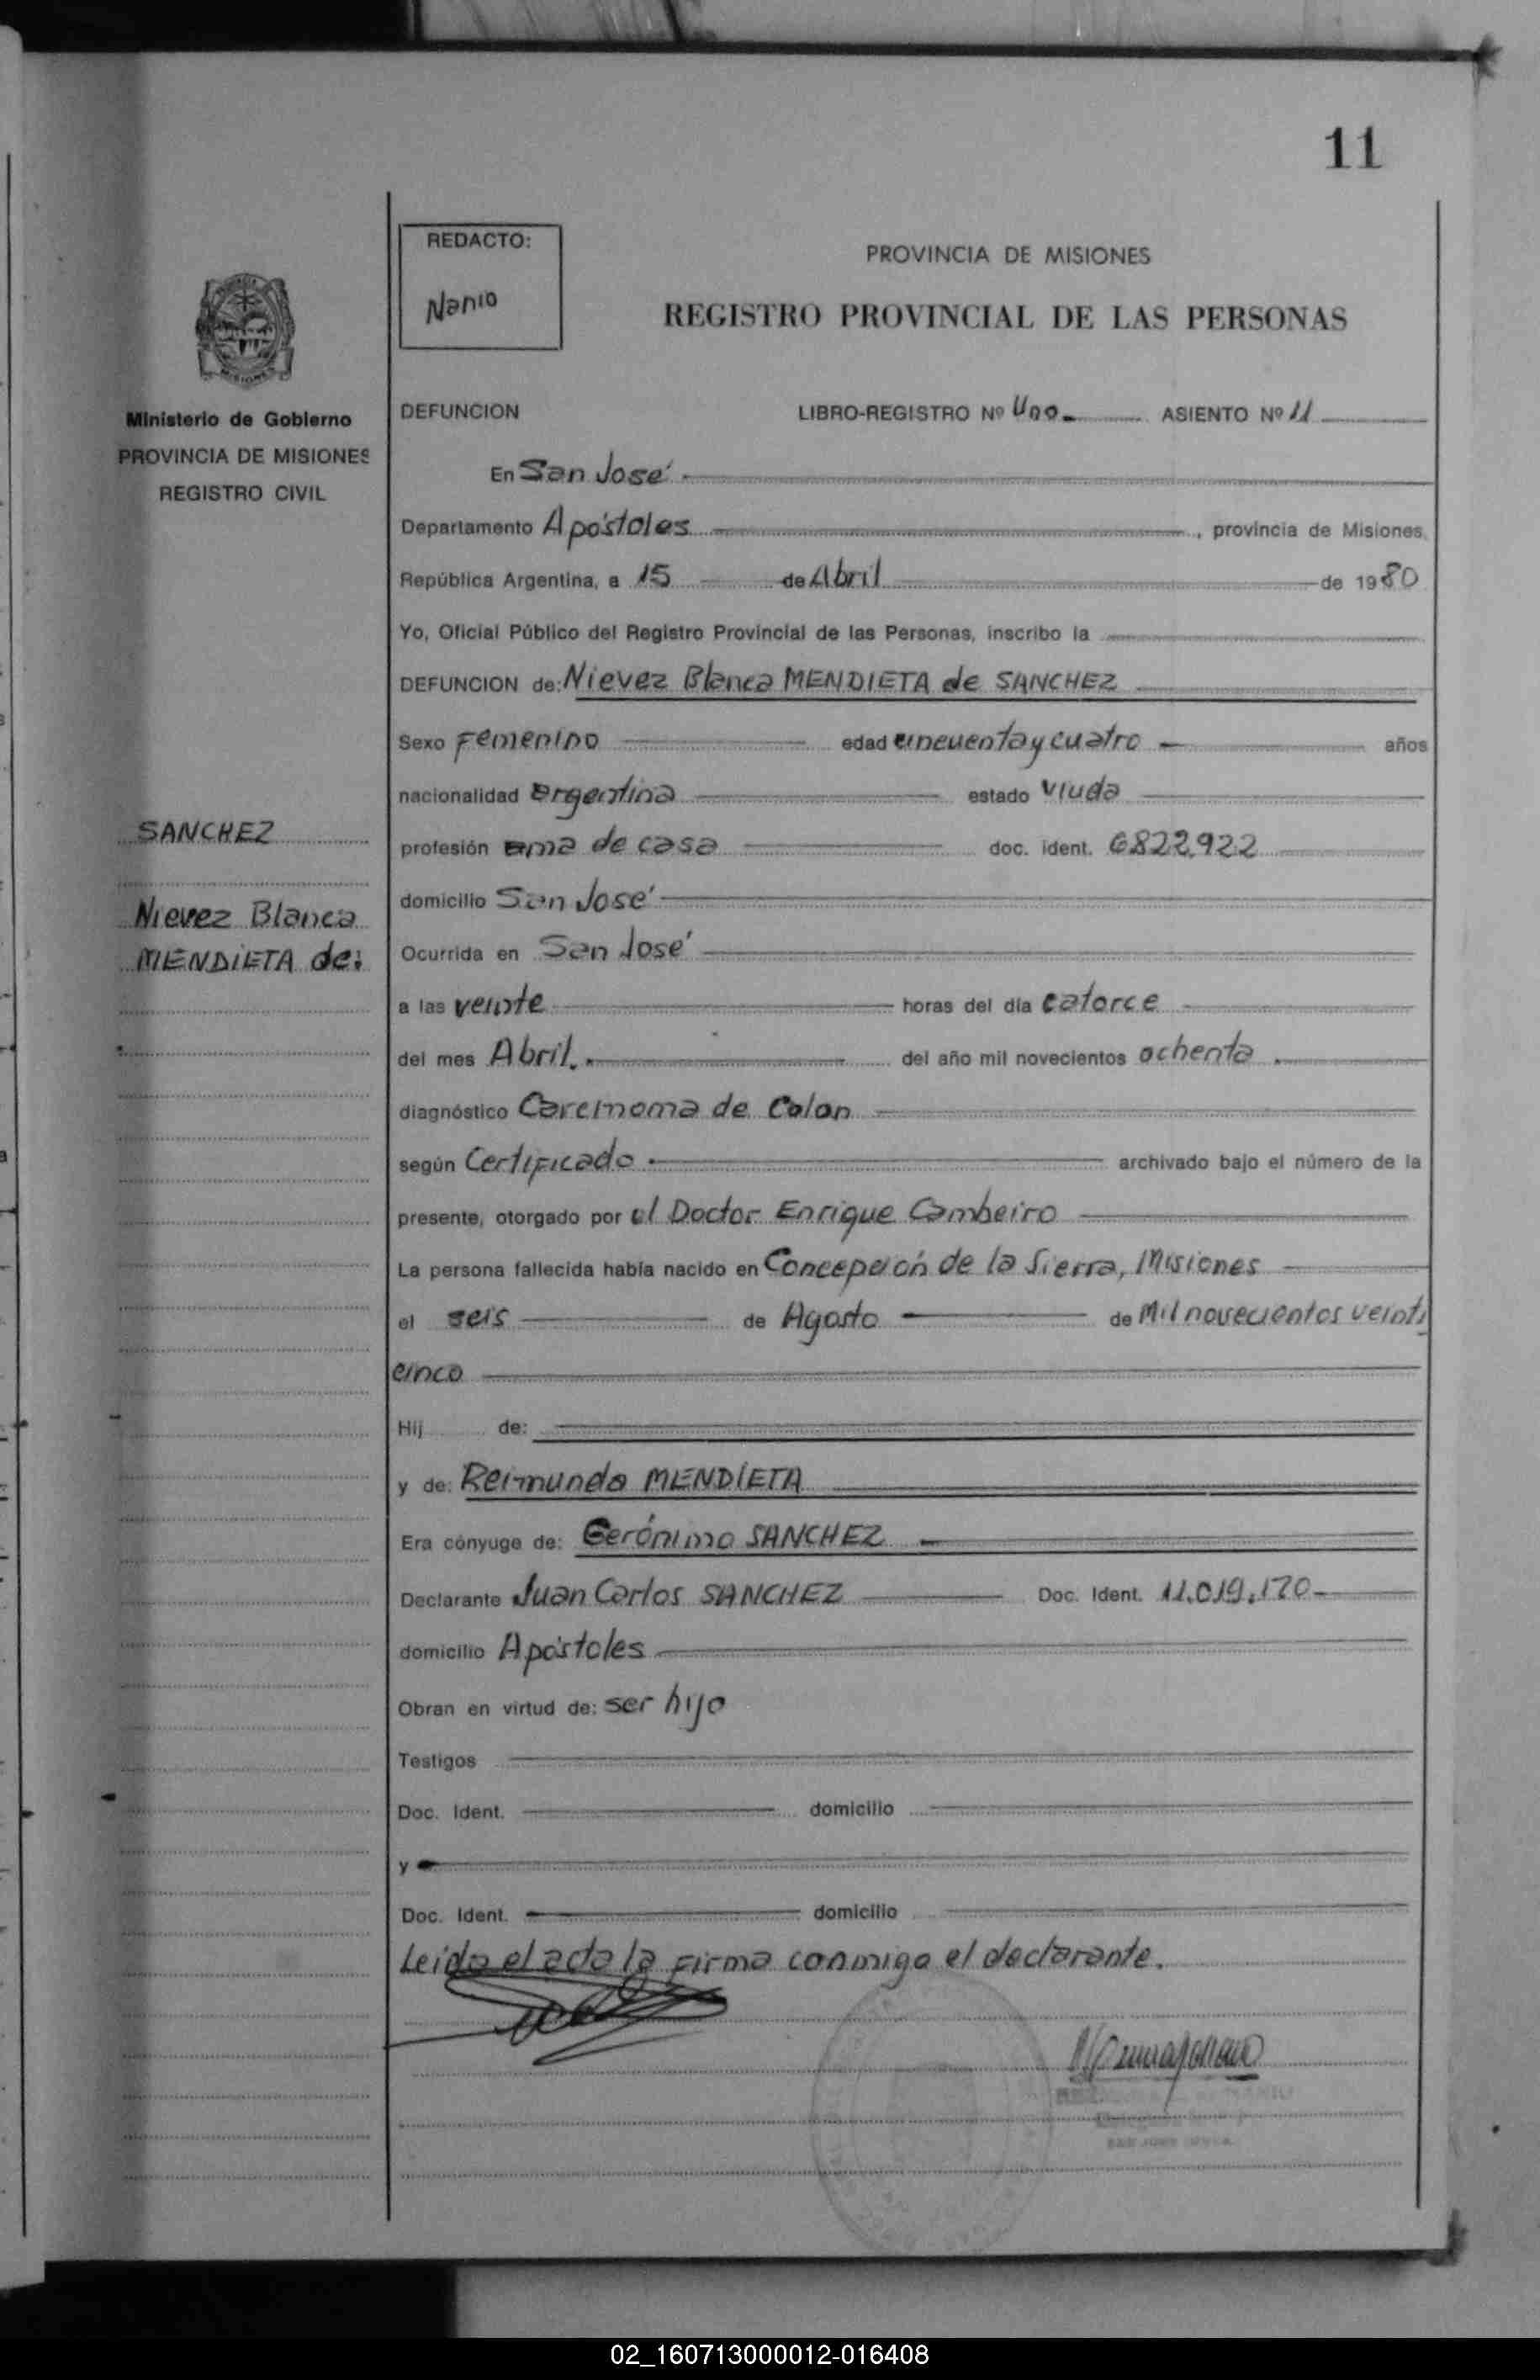 11
REDACTO:
Nanio
PROVINCIA DE MISIONES
REGISTRO PROVINCIAL DE LAS PERSONAS
Ministerio de Gobierno
PROVINCIA DE MISIONES
REGISTRO CIVIL
SANCHEZ
Nievez Blanca
MENDIETA de:
DEFUNCION LIBRO-REGISTRO Nº Uno ASIENTO Nº 11
En San José
Departamento Apóstoles, provincia de Misiones,
República Argentina, a 15 de Abril de 1980
Yo, Oficial Público del Registro Provincial de las Personas, inscribo la
DEFUNCION de: Nievez Blanca MENDIETA de SANCHEZ
Sexo Femenino edad cincuenta y cuatro años
nacionalidad argentina estado viuda
profesión ama de casa doc. ident. 6822.922
domicilio San José
Ocurrida en San José
a las veinte horas del día catorce
del mes Abril. del año mil novecientos ochenta
diagnóstico Carcinoma de Colon
según Certificado archivado bajo el número de la
presente, otorgado por el Doctor Enrique Cambeiro
La persona fallecida había nacido en Concepción de la Sierra, Misiones
el seis de Agosto de Mil novecientos veinti
cinco
Hij de:
y de: Reimundo MENDIETA
Era cónyuge de: Gerónimo SANCHEZ
Declarante Juan Carlos SANCHEZ Doc. Ident. 11.019.170
domicilio Apóstoles
Obran en virtud de: ser hijo
Testigos
Doc. Ident. domicilio
y
Doc. Ident. domicilio
Leida el acta la firma conmigo el declarante.
02_160713000012-016408